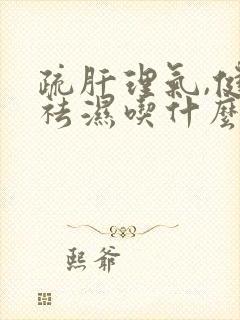 疏肝理氣,健
祛濕喫什麼
熙爺